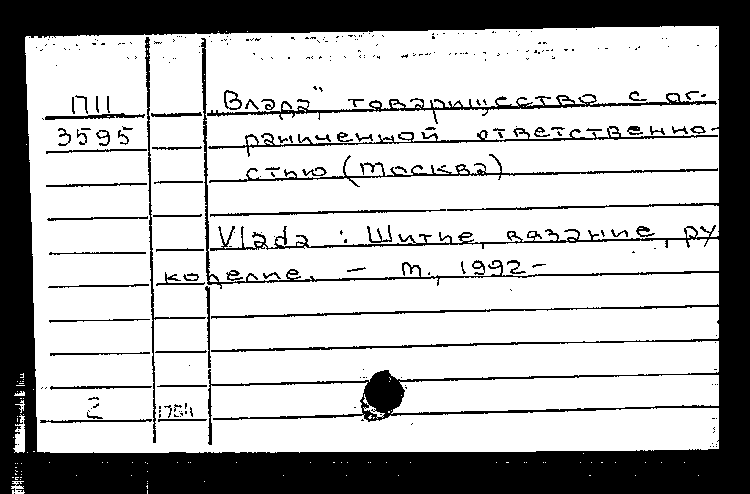 П11 „Влада”, товарищество с ог-
3595 раниченной ответственно-
стью (Москва)
Vlada : Шитье, вязание, ру
коделие. — М., 1992-
2